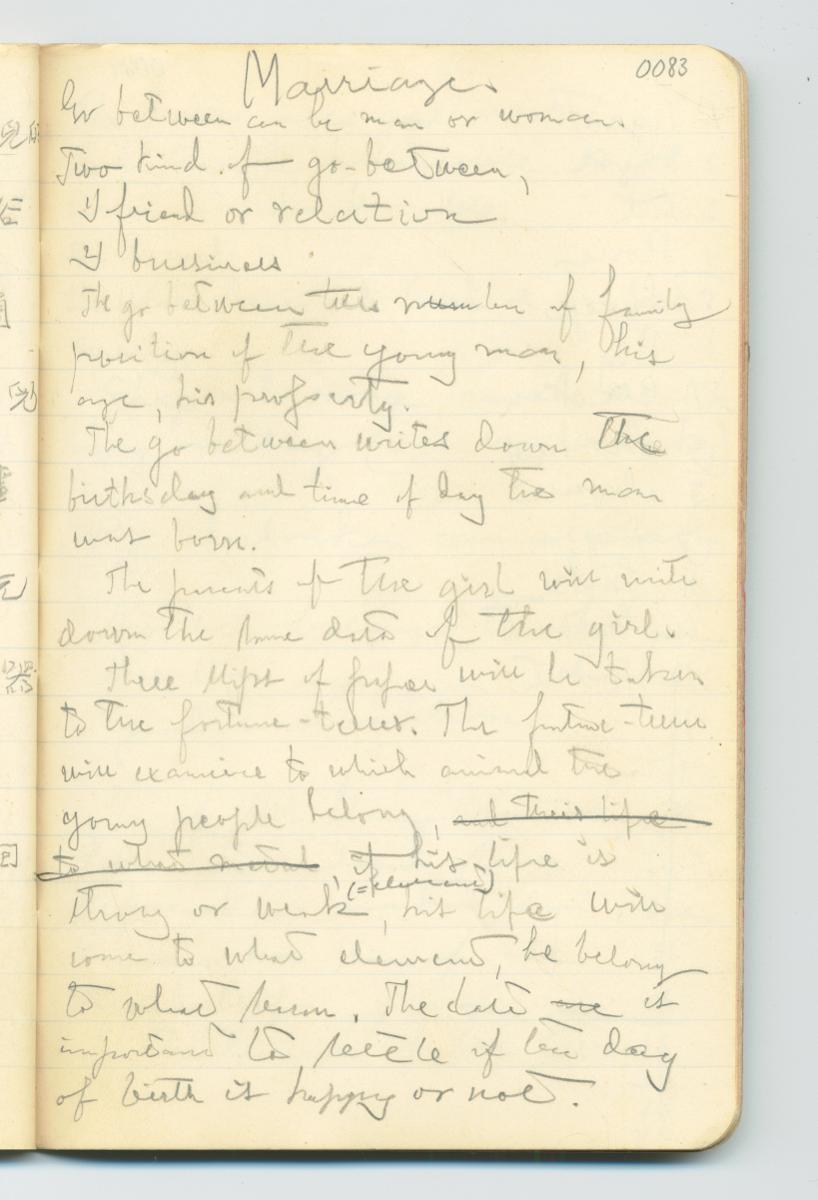 0083
Marriage.
Go between can be man or woman.
Two kind of go-between,
1) friend or relation
2) bussiness
The go between tells number of family
position of the young man, his
age, his property.
The go between writes down the
birthsday and time of day the man
was born.
The parents of the girl will write
down the same data of the girl.
These slips of paper will be taken
to the fortune-teller. The fortune-teller
will examine to which animal the
young people belong, and their life
to what metal, if his life is
(=element)
strong or weak, his life will
come to what element, he belong
to what season. The date is
important to settle if the day
of birth is happy or not.